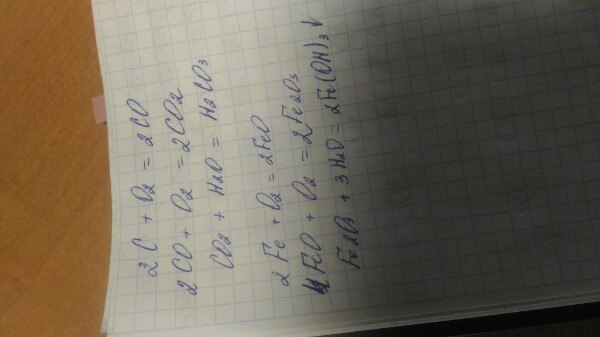 2C + O2 = 2CO
2CO + O2 = 2CO2
CO2 + H2O = H2CO3
2Fe + O2 = 2FeO
4FeO + O2 = 2Fe2O3
Fe2O3 + 3H2O = 2Fe(OH)3↓